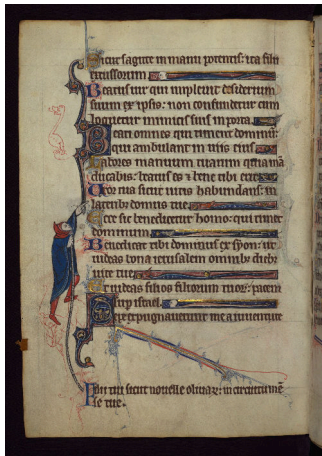 Sicut sagitte in manu potentis: ita filii
excussorum
Beatus vir qui implevit desiderium
suum ex ipsis: non confundetur cum
loquetur inimicis suis in porta
Beati omnes qui timent dominum:
qui ambulant in viis eius
Labores manuum tuarum quia man
ducabis: beatus es et bene tibi erit
Uxor tua sicut vitis habundans: in
lateribus domus tue
Ecce sic benedicetur homo: qui timet
dominum
Benedicat tibi dominus ex syon: ut
videas bona ierusalem omnibus diebus
vite tue
Et videas filios filiorum tuorum: pacem
super israel
Sepe expugnaverunt me a iuventute
Filii tui sicut novelle olivarum: in circuitu men
se tue.